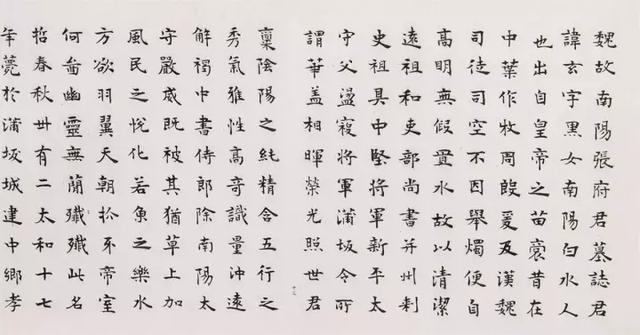 魏故南陽張府君墓誌君
諱玄字黑女南陽白水人
也出自皇帝之苗裔昔在
中葉作牧周殷爰及漢魏
司徒司空不因舉燭便自
高明無假置水故以清潔
遠祖和吏部尚書并州刺
史祖具中堅將軍新平太
守父盪寇將軍蒲坂令所
謂華盖相暉榮光照世君
稟陰陽之純精含五行之
秀氣雅性高奇識量沖遠
解褐中書侍郎除南陽太
守嚴威既被其猶草上加
風民之悅化若魚之樂水
方欲羽翼天朝抓牙帝室
何啚幽靈無蕳殲殲此名
哲春秋卅有二太和十七
年薨於蒲坂城建中鄉孝